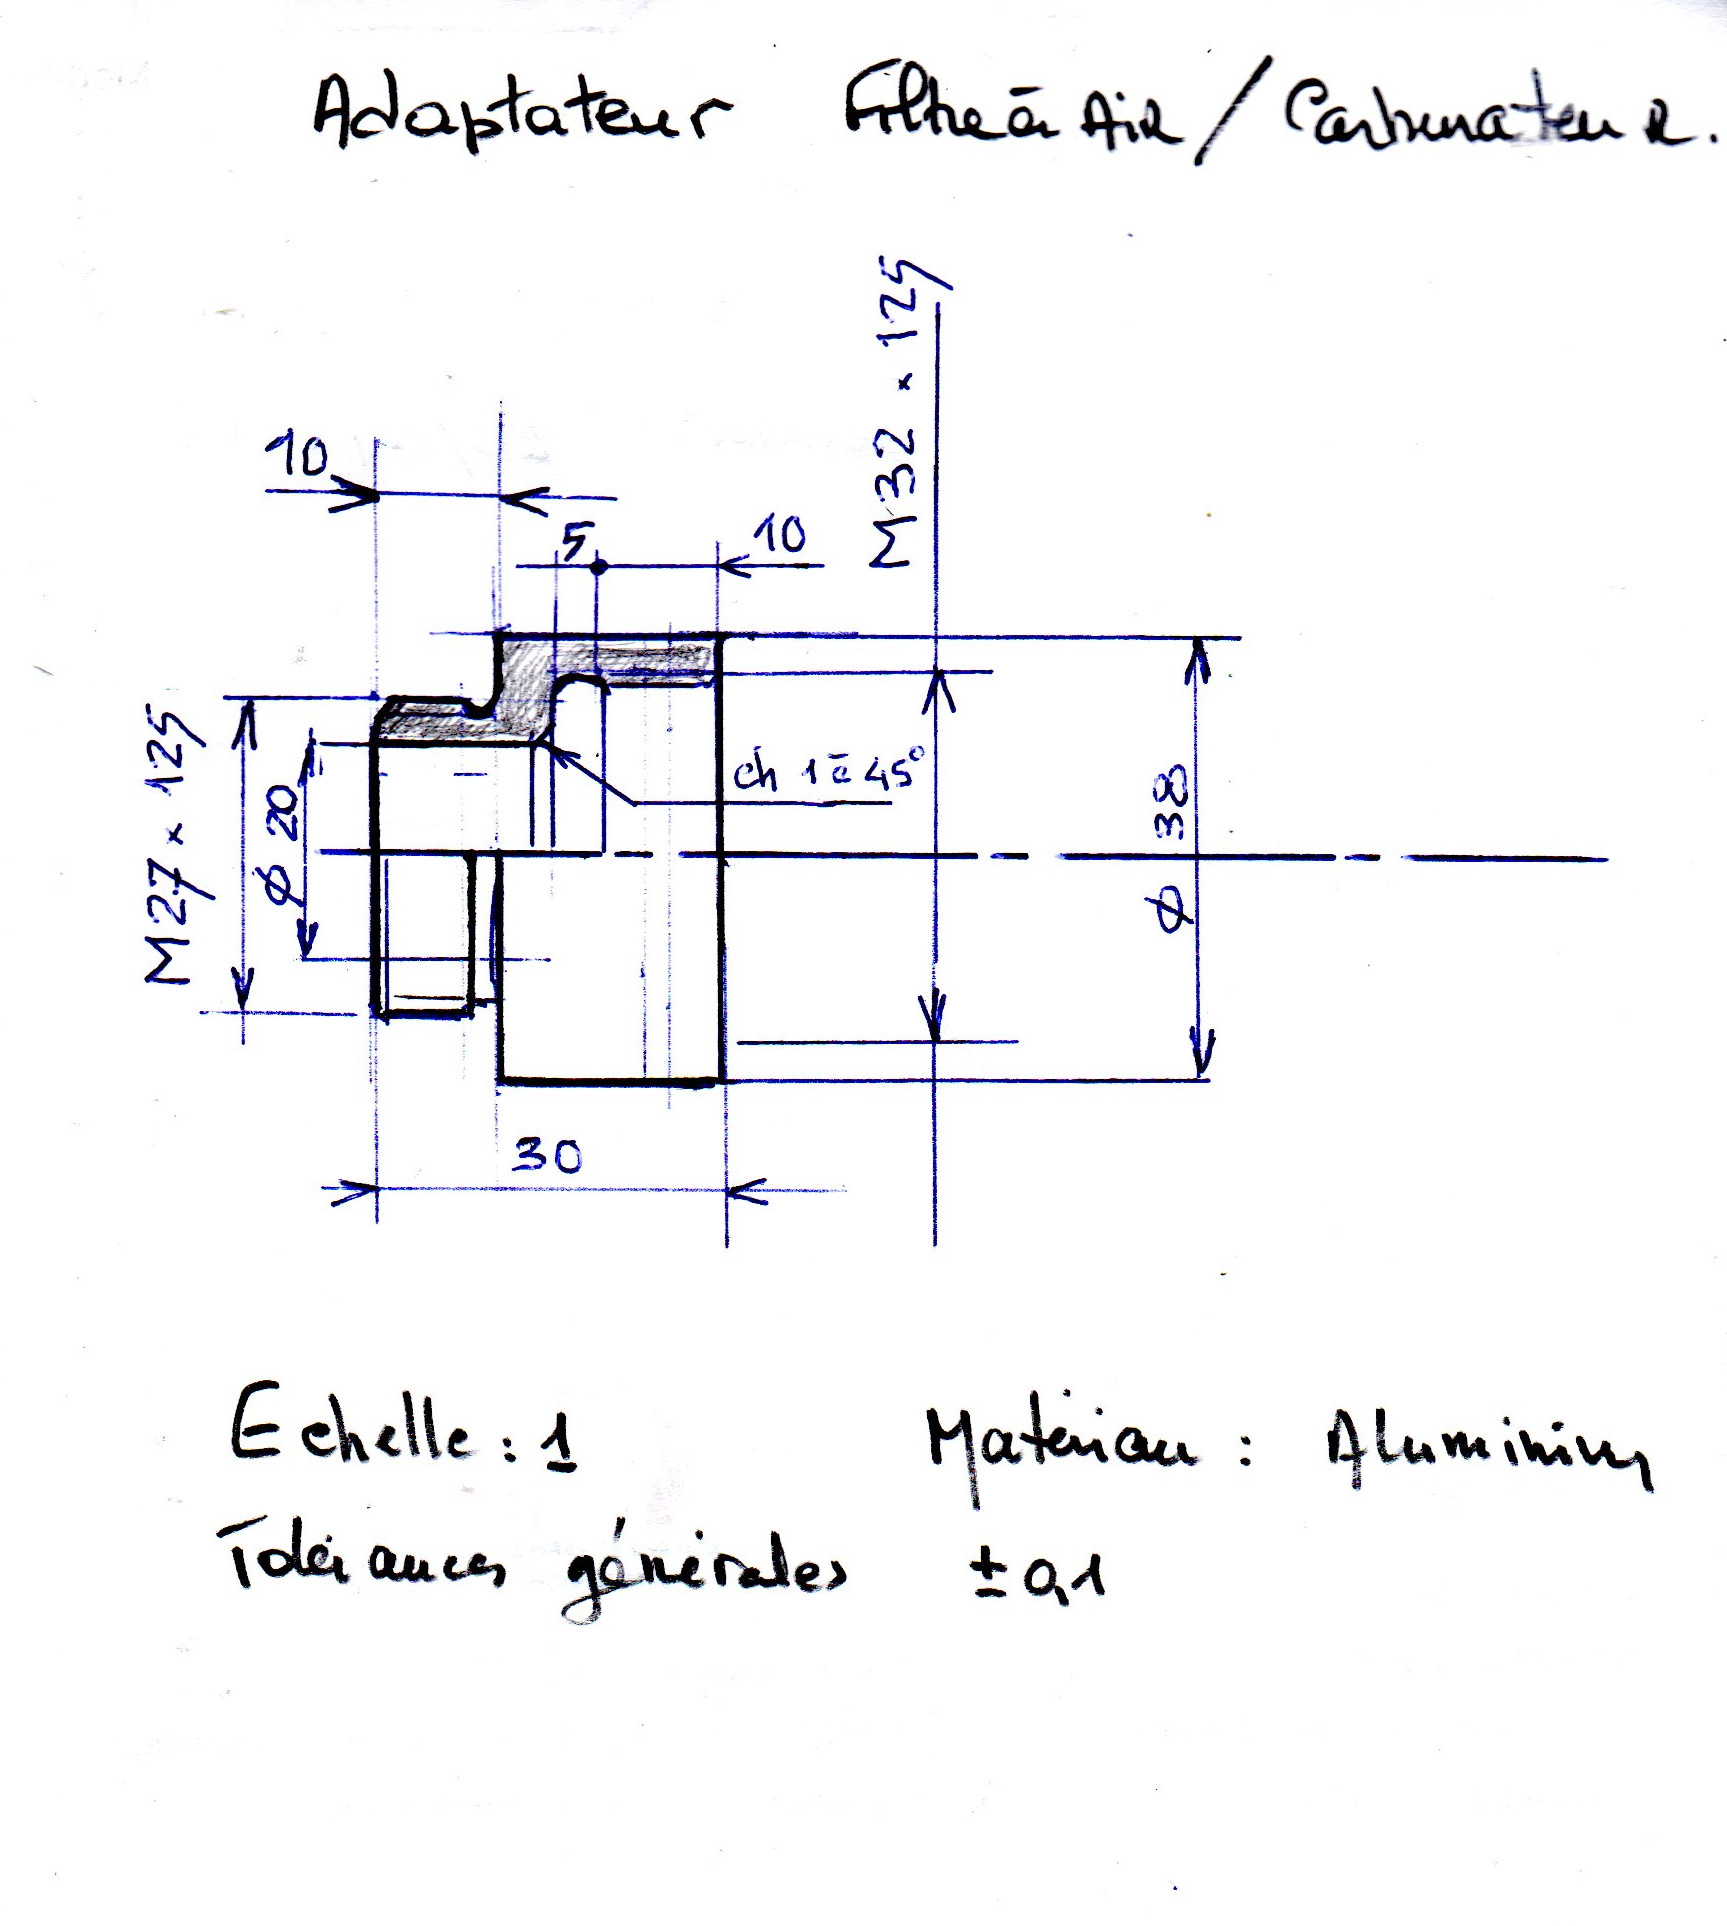 Adaptateur Filtre à Air / Carburateur.
M32 × 125
10
5
10
M27 × 125
φ 20
ch 1 à 45°
φ 38
30
Echelle : 1
Matériau : Aluminium
Tolérances générales ± 0,1